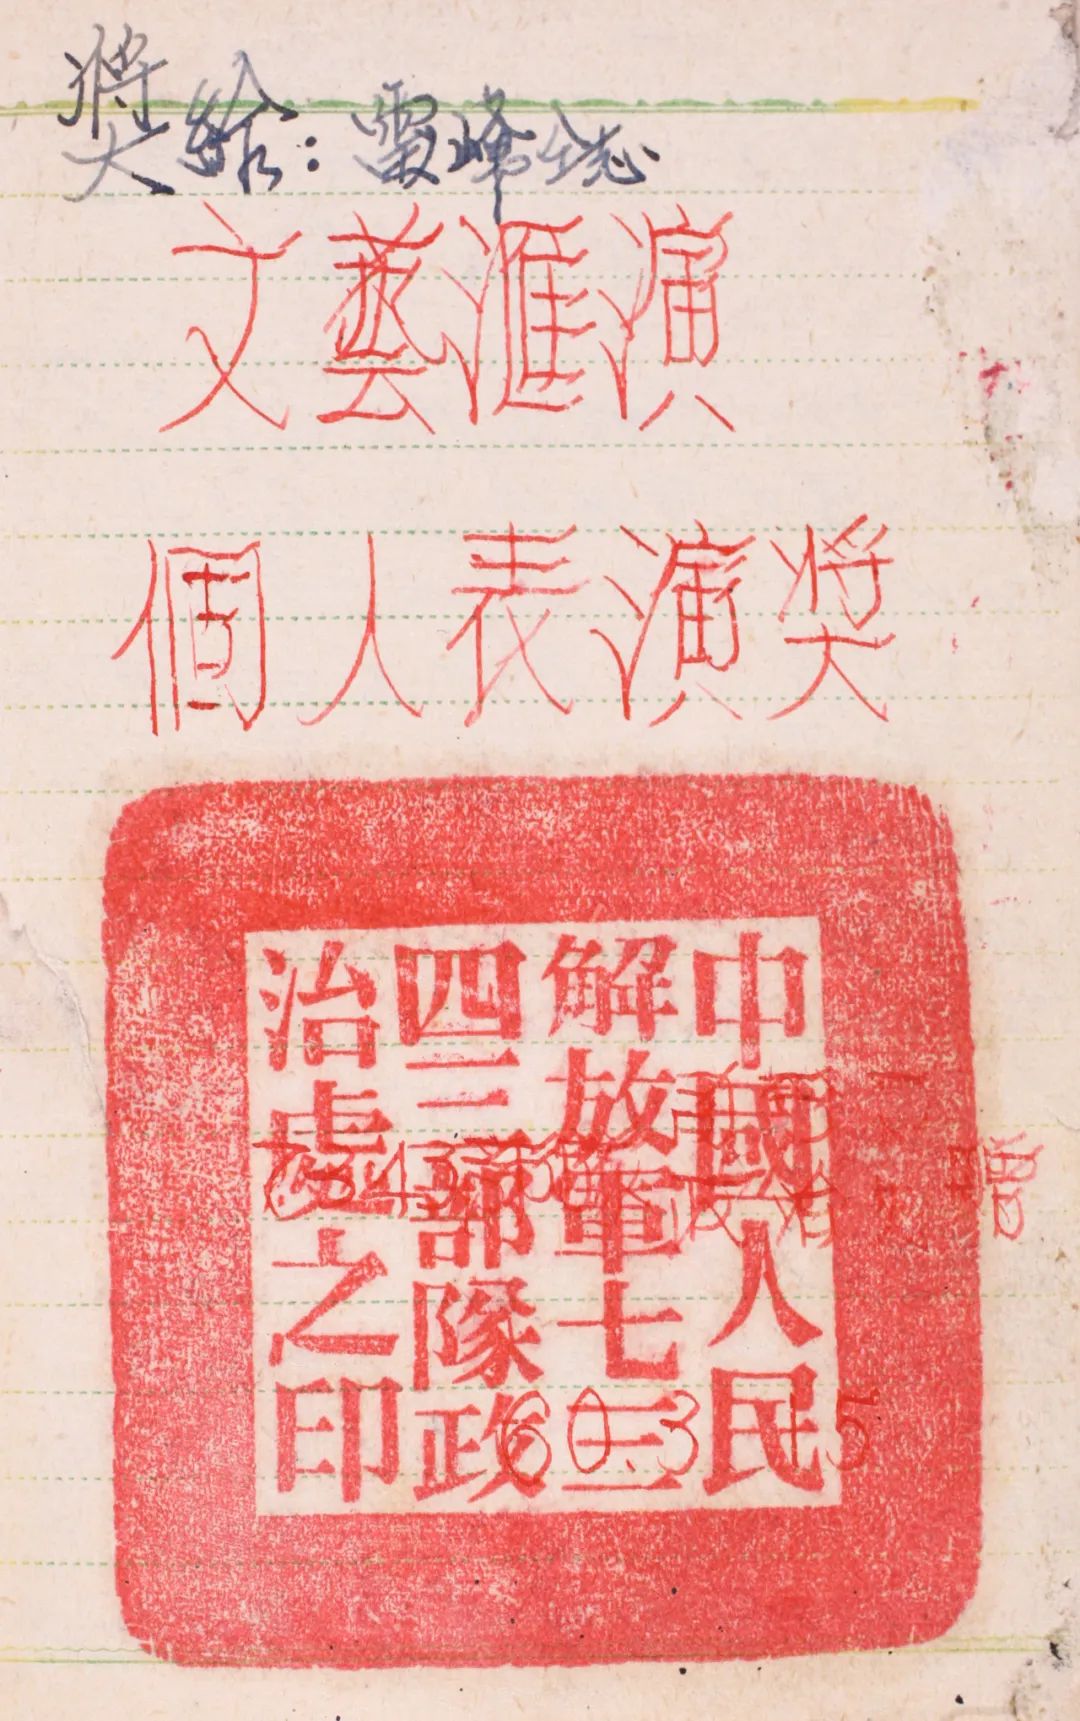 奬給：雷峰仝志
文藝滙演
個人表演奬
中國人民
解放軍七三
四三部隊政
治處之印
60.3.15